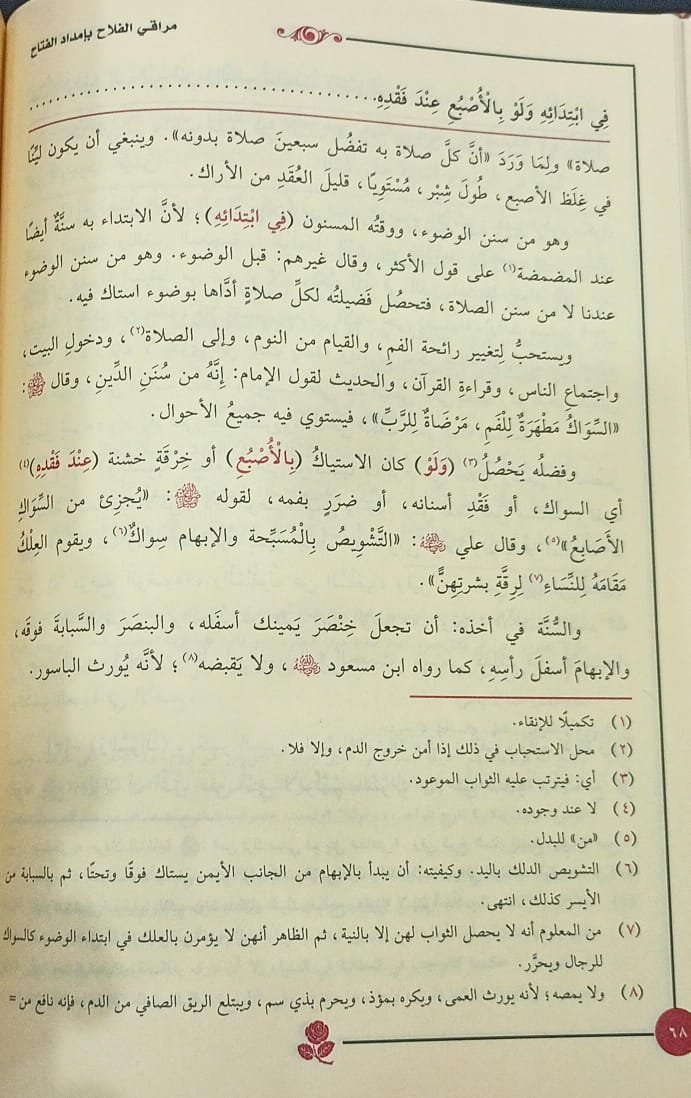 مراقي الفلاح بإمداد الفتاح
فِي ابْتِدَائِهِ وَلَوْ بِالْأُصْبُعِ عِنْدَ فَقْدِهِ......................................
صلاة» ولِمَا وَرَدَ «أنَّ كلَّ صلاة به تفضُل سبعينَ صلاة بدونه». وينبغي أن يكون ليِّنًا
في غِلَظ الأصبع، طُولَ شِبْر، مُسْتَوِيًا، قليلَ العُقَدِ من الأراك.
وهو من سنن الوضوء، ووقتُه المسنون (فِي ابْتِدَائِهِ)؛ لأنَّ الابتداء به سنَّةٌ أيضًا
عند المضمضة(١) على قول الأكثر، وقال غيرهم: قبل الوضوء. وهو من سنن الوضوء
عندنا لا من سنن الصلاة، فتحصُل فَضيلتُه لكلِّ صلاةٍ أدَّاها بوضوء استاك فيه.
ويستحبُّ لِتغيير رائحة الفمِ، والقيام من النوم، وإلى الصلاة(٢)، ودخولِ البيت،
واجتماعِ الناس، وقراءةِ القرآن، والحديث لقول الإمام: إنَّهُ من سُنَنِ الدِّينِ، وقال ﷺ:
«السِّوَاكُ مَطْهَرَةٌ لِلْفَمِ، مَرْضَاةٌ لِلرَّبِّ»، فيستوي فيه جميعُ الأحوال.
وفضلُه يَحْصُلُ(٣) (وَلَوْ) كان الاستياكُ (بِالْأُصْبُعِ) أو خِرْقَةٍ خشنة (عِنْدَ فَقْدِهِ)(٤)
أي السواك، أو فَقْدِ أسنانه، أو ضررٍ بفمه، لقوله ﷺ: «يُجزِئ من السِّوَاكِ
الأَصَابِعُ»(٥)، وقال علي رضي الله عنه: «التَّشْوِيصُ بِالْمُسَبِّحة والإبهام سِواكٌ(٦)، ويقوم العِلْكُ
مَقَامَهُ لِلنِّسَاءِ(٧) لِرِقَّةِ بشرتهِنَّ».
والسُّنَّة في أخذه: أن تجعلَ خِنْصَرَ يَمينك أسفَله، والبنصَرَ والسَّبابةَ فوقَه،
والإبهامَ أسفلَ رأسِهِ، كما رواه ابن مسعود رضي الله عنه، ولا يَقبضه(٨)؛ لأنَّه يُورث الباسور.
(١) تكميلًا للإنقاء.
(٢) محل الاستحباب في ذلك إذا أمن خروج الدم، وإلا فلا.
(٣) أي: فيترتب عليه الثواب الموعود.
(٤) لا عند وجوده.
(٥) «من» للبدل.
(٦) التشويص الدلك باليد. وكيفيته: أن يبدأ بالإبهام من الجانب الأيمن يستاك فوقًا وتحتًا، ثم بالسبابة من
الأيسر كذلك، انتهى.
(٧) من المعلوم أنه لا يحصل الثواب لهن إلا بالنية، ثم الظاهر أنهن لا يؤمرن بالعلك في ابتداء الوضوء كالسواك
للرجال ويحرَّر.
(٨) ولا يمصه؛ لأنه يورث العمى، ويكره بمؤذ، ويحرم بذي سم، ويبتلع الريق الصافي من الدم، فإنه نافع من =
٦٨